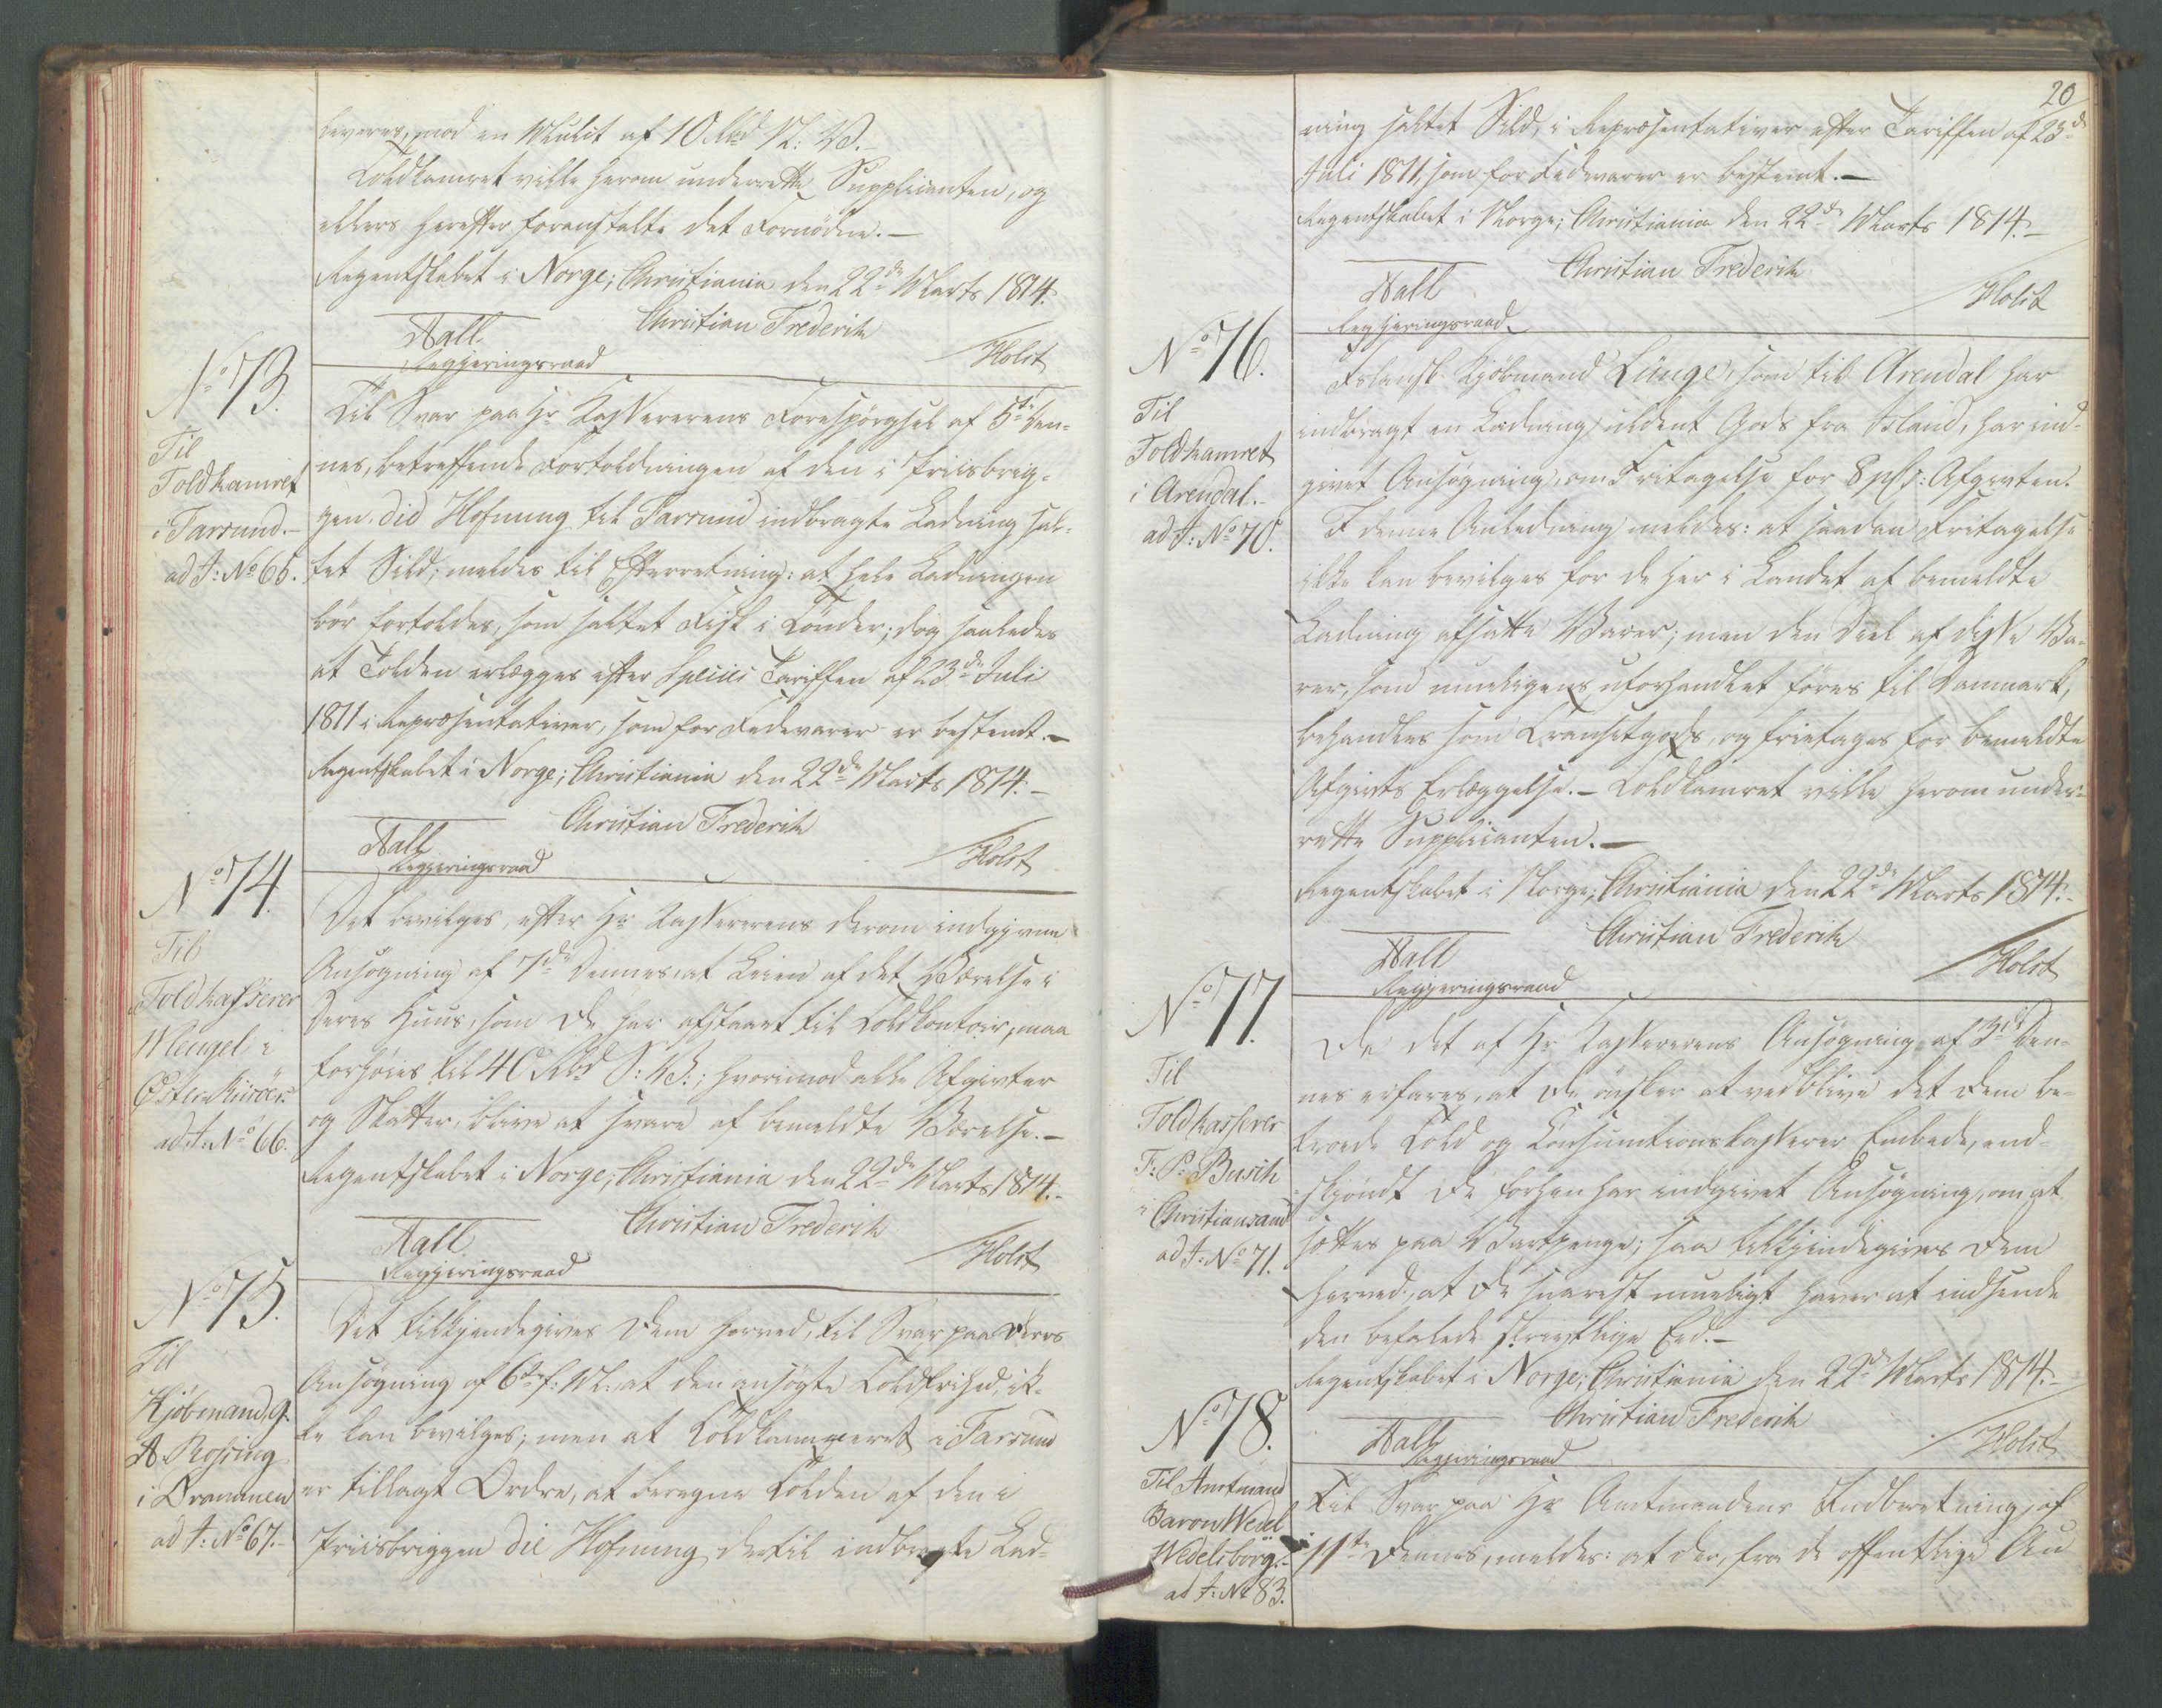 leveres, mod en Mulct af 10 Rbd N. V.-
Toldkamret ville herom underrette Supplicanten, og
ellers herefter foranstalte det Fornødne.-
Regentskabet i Norge; Christiania den 22de Marts 1814.
Christian Frederik
Aall
Regjeringsraad
Holst
No 73.
Til
Toldkamret
i Farsund.-
ad J: No 65.
Til Svar paa Hr Kassererens Forespørgsel af 5te Den-
nes, betreffende Fortoldningen af den i Priisbrig-
gen die Hofnung til Farsund indbragte Ladning sal-
tet Sild; meldes til Efterretning: at hele Ladningen
bør fortoldes, som saltet Fisk i Tønder; dog saaledes
at Tolden erlægges efter Specie Tariffen af 23de Juli
1811 i Repræsentativer, som for Fedevarer er bestemt.-
Regentskabet i Norge; Christiania den 22de Marts 1814.-
Christian Frederik
Aall
Regjeringsraad
Holst
No 74.
Til
Toldkasserer
Mengel i
Øster-Riisöer.
ad J: No 66.
Det bevilges, efter Hr Kassererens derom indgivne
Ansøgning af 7de Dennes, at Leien af det Værelse i
Deres Huus, som De har afstaaet til Toldkontoir, maa
forhøies til 40 Rbd S: V:; hvorimod alle Afgivter
og Skatter, blive at svare af bemeldte Værelse.-
Regentskabet i Norge; Christiania den 22de Marts 1814.-
Christian Frederik
Aall
Regjeringsraad
Holst
No 75.
Til
Kjöbmand G.
A. Rossing
i Drammen
ad J: No 67.-
Det tilkjendegives Dem herved, til Svar paa Deres
Ansøgning af 6te f: M:, at den ansøgte Toldfrihed, ik-
ke kan bevilges; men at Toldkammeret i Farsund
er tillagt Ordre, at beregne Tolden af den i
Priisbriggen die Hofnung dertil indbragte Lad-
20
ning saltet Sild, i Repræsentativer efter Tariffen af 23de
Juli 1811, som for Fedevarer er bestemt.-
Regentskabet i Norge; Christiania den 22de Marts 1814.-
Christian Frederik
Aall
Regjeringsraad
Holst
No 76.
Til
Toldkamret
i Arendal.-
ad J: No 70.
Islandsk Kjöbmand Lünge, som til Arendal har
indbragt en Ladning uldent Gods fra Island, har ind-
givet Ansøgning, om Fritagelse for 8 pCt: Afgivten.
I denne Anledning meldes: at saadan Fritagelse
ikke kan bevilges for de her i Landet af bemeldte
Ladning afsatte Varer; men den Deel af disse Va-
rer, som mueligens uforhandlet føres til Danmark,
behandles som Transitgods, og fritages for bemeldte
Afgivts Erlæggelse.- Toldkamret ville herom under-
rette Supplicanten.-
Regentskabet i Norge; Christiania den 22de Marts 1814.-
Christian Frederik
Aall
Regjeringsraad
Holst
No 77.
Til
Toldkasserer
F. P. Busch
i Christiansand
ad J: No 71.
Da det af Hr Kassererens Ansøgning af 3de Den-
nes erfares, at De ønsker at vedblive det Dem be-
troede Told og Consumtionskasserer Embede, end-
skjøndt De forhen har indgivet Ansøgning, om at
sættes paa Vartpenge; saa tilkjendegives Dem
herved, at De snarest mueligt haver at indsende
den befalede skrivtlige Eed.-
Regentskabet i Norge; Christiania den 22de Marts 1814.-
Christian Frederik
Aall
Regjeringsraad
Holst
No 78.
Til Amtmand
Baron Wedel
Wedelsborg.-
ad J: No 83.
Til Svar paa Hr Amtmandens Indberetning, af
11te Dennes, meldes: at der, fra de offentlige Au